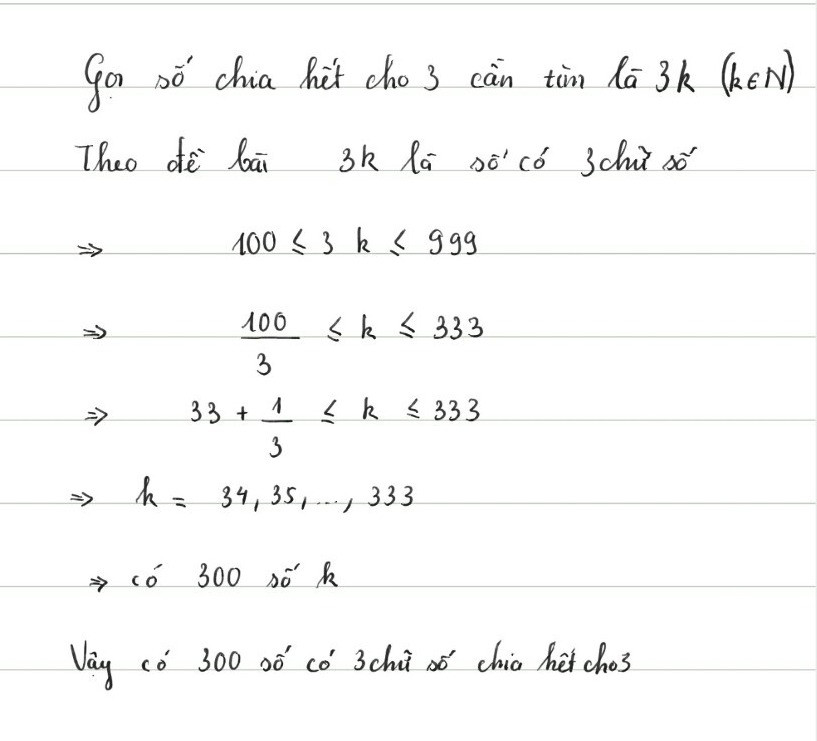 Gọi số chia hết cho 3 cần tìm là 3k (k∈N)
Theo đề bài 3k là số có 3 chữ số
=> 100 ≤ 3 k ≤ 999
=> 100/3 ≤ k ≤ 333
=> 33 + 1/3 ≤ k ≤ 333
=> k = 34, 35, ..., 333
=> có 300 số k
Vậy có 300 số có 3 chữ số chia hết cho 3